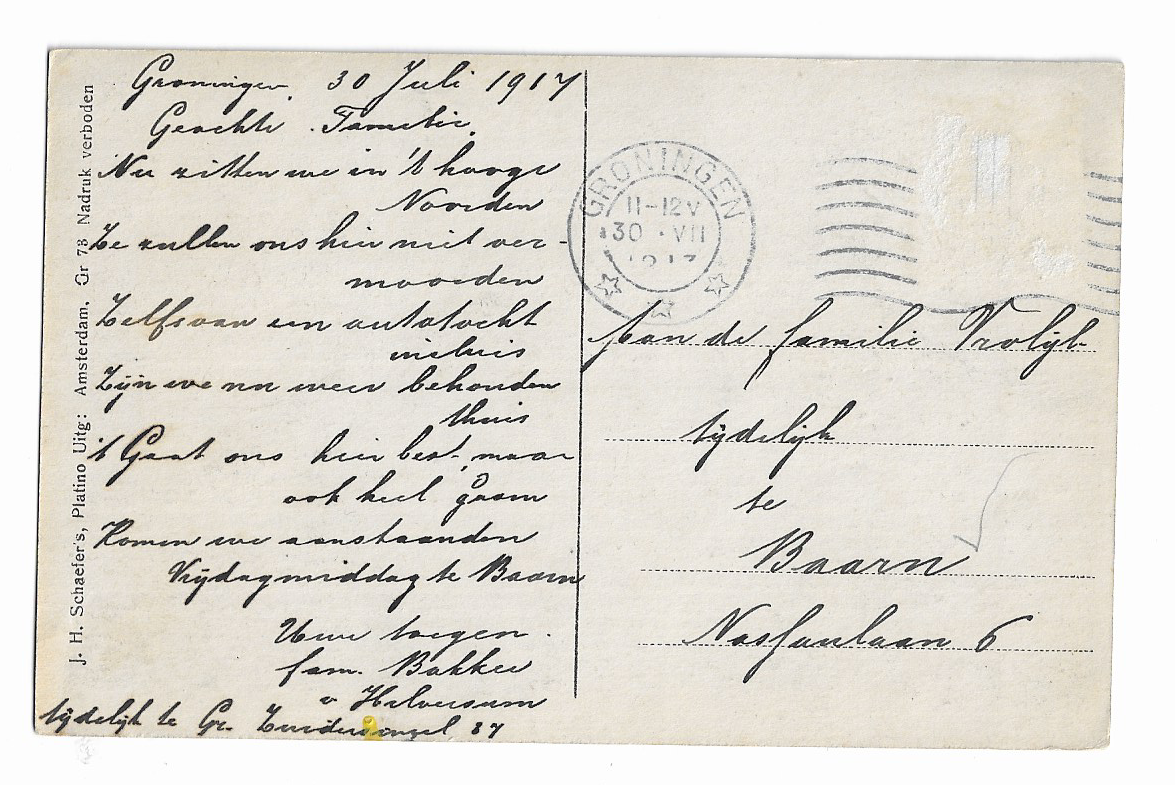 Groningen, 30 Juli 1917
Geachte Familie,
Nu zitten we in 't hooge
Noorden
Ze zullen ons hier niet ver-
moorden
Zelfs van een autotocht
incluis
Zijn we nu weer behouden
thuis
't Gaat ons hier best, maar
ook heel gaarn
Komen we aanstaanden
Vrijdagmiddag te Baarn
Uwe toegen.
fam. Bakker
v Hilversum
tijdelijk te Gr. Zuidersingel 37
J. H. Schaefer's, Platino Uitg: Amsterdam. Gr 73 Nadruk verboden
GRONINGEN
11-12V
30 · VII
1917
Aan de familie Vrolijk
tijdelijk
te
Baarn
Nassaulaan 6